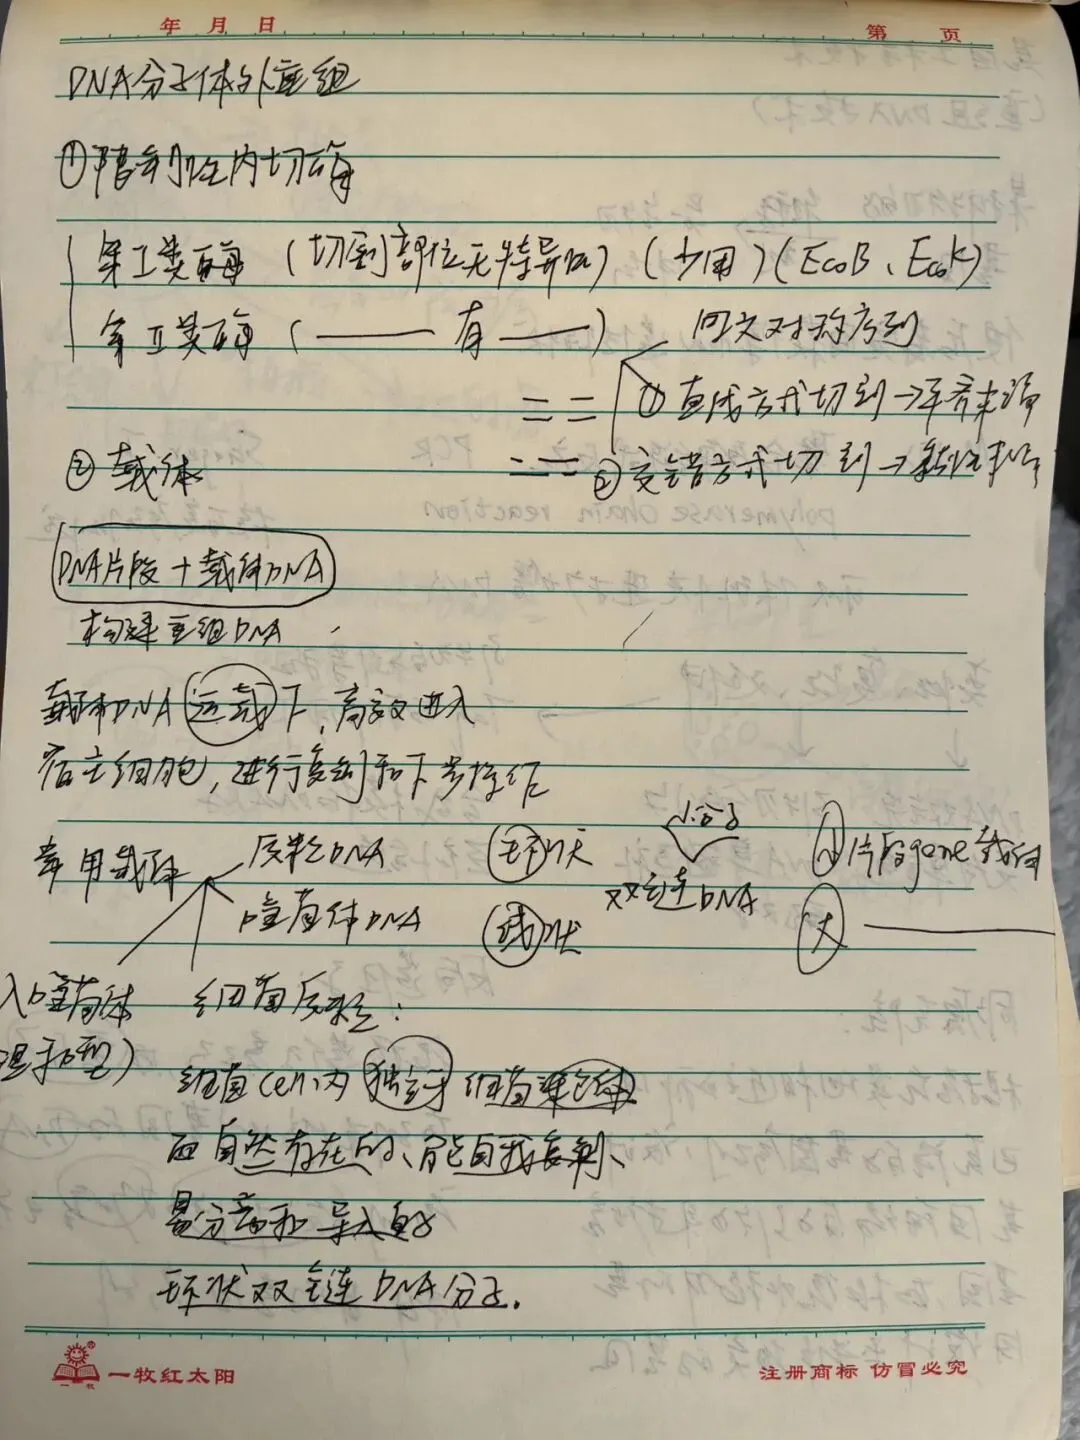 年 月 日
第 页
DNA分子体外重组
①限制性内切酶
第I类酶 (切割部位无特异性) (少用) (EcoB、EcoK)
第II类酶 (—— 有 ——) 回文对称序列
①直线方式切割→平齐末端
②载体
②交错方式切割→黏性末端
DNA片段+载体DNA
构建重组DNA
载体DNA运载下,高效进入
宿主细胞,进行复制和下步操作
常用载体
质粒DNA 环状 小分子 小片段gene载体
噬菌体DNA 线状 双链DNA 大 ——
入噬菌体 细菌质粒:
温和型)
细菌cell内独立于细菌染色体
而自然存在的、能自我复制、
易分离和导入的
环状双链DNA分子.
一牧红太阳
一牧
注册商标 仿冒必究